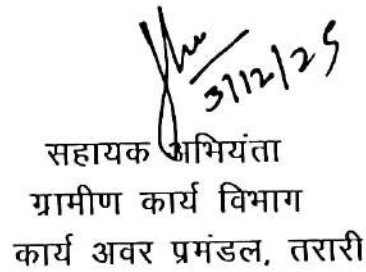 3/12/25
सहायक अभियंता
ग्रामीण कार्य विभाग
कार्य अवर प्रमंडल, तरारी